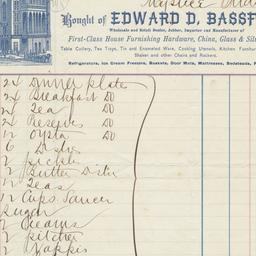 Bought of EDWARD D. BASSF
Wholesale and Retail Dealer, Jobber, Importer and Manufacturer of
First-Class House Furnishing Hardware, China, Glass & Silv
Table Cutlery, Tea Trays, Tin and Enameled Ware, Cooking Utensils, Kitchen Furnitur
Shaker and other Chairs and Rockers.
Refrigerators, Ice Cream Freezers, Baskets, Door Mats, Mattresses, Bedsteads, F
24 Dinner plate
24 Breakfast DO
24 Tea DO
24 Preserves DO
12 Oyster DO
6 Dishes
2 pickles
2 Butter Dishes
12 Teas
12 Cups Saucer
Sugar
2 Creams
2 pitcher
2 Nappis